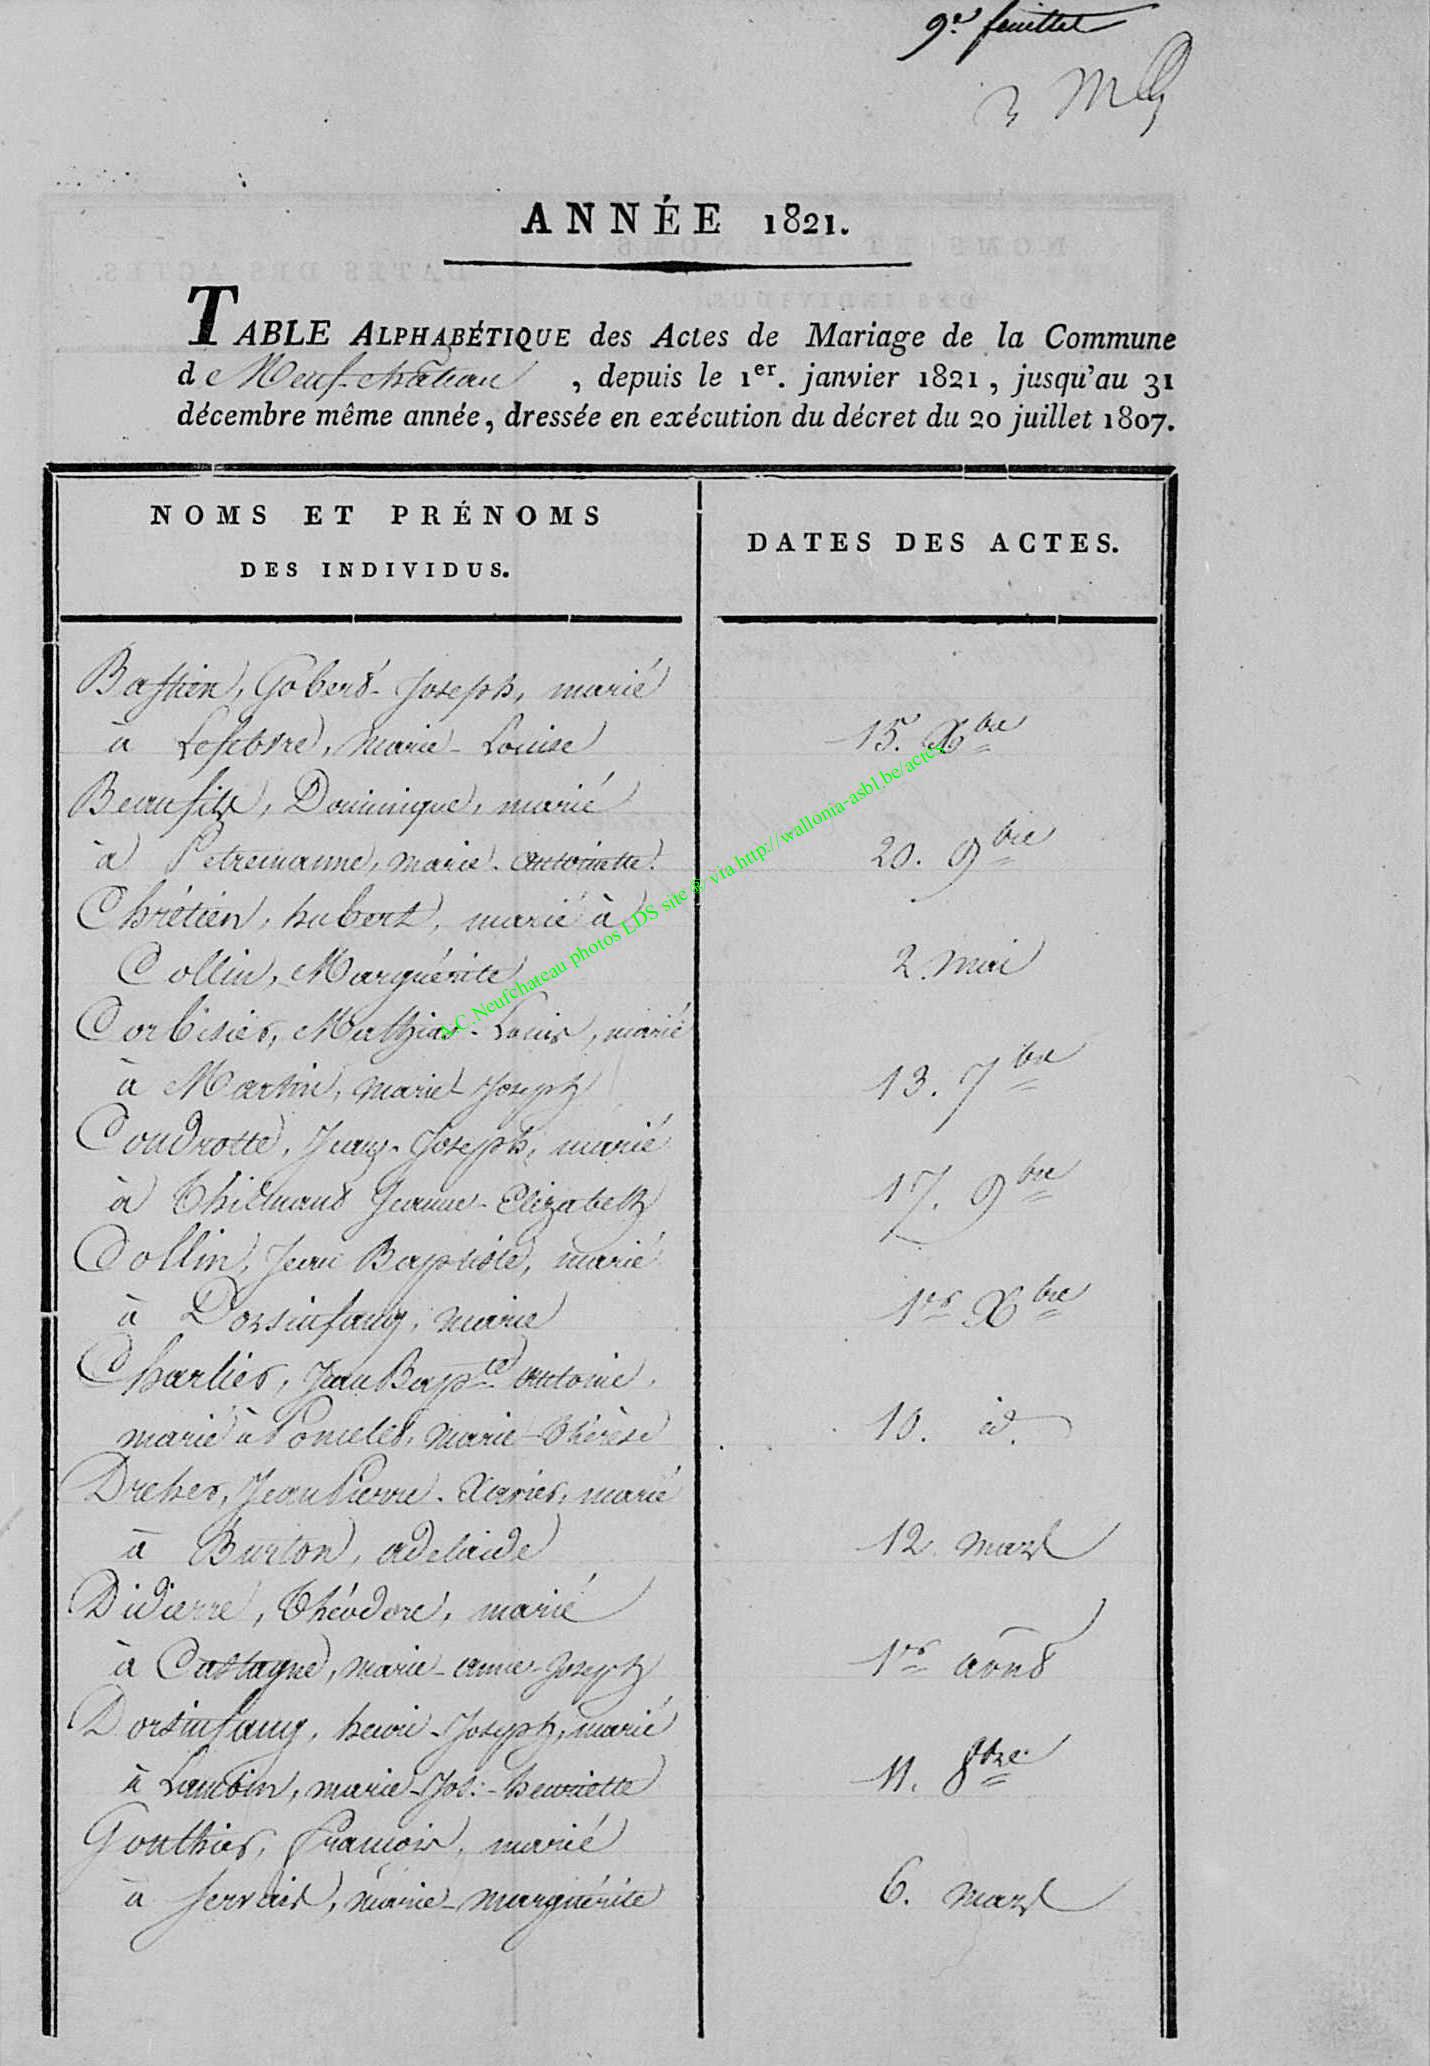 9.e feuillet
ANNÉE 1821.
TABLE ALPHABÉTIQUE des Actes de Mariage de la Commune
de Neufchateau, depuis le 1er. janvier 1821, jusqu'au 31
décembre même année, dressée en exécution du décret du 20 juillet 1807.
NOMS ET PRÉNOMS
DES INDIVIDUS.
DATES DES ACTES.
Bastien, Gobert-Joseph, marié
à Lefebvre, Marie-Louise 15. Xbre
Beaufils, Dominique, marié
à Petremanne, marie-antoinette. 20. 9bre
Chrétien, hubert, marié à
Collin, Marguérite 2 mai
Corbisier, Mathias-Louis, marié
à Martin, marie-Joseph 13. 7bre
Coudrotte, Jean-Joseph, marié
à Thilmant Jeanne-Elizabeth 17. 9bre
Collin, Jean Baptiste, marié
à Dorsinfang, marie 1er Xbre
Charlier, Jean Bapte antoine,
marié à Poncelet, marie-thérèse 10. id.
Dreher, Jean Pierre-Xavier, marié
à Burton, adelaide 12 mars
Didierre, Théodore, marié
à Castagne, marie-anne-Joseph 1er avril
Dorsinfang, henri-Joseph, marié
à Lambin, marie-Jos:-henriette 11. 8bre
Gonthier, François, marié
à Servais, marie-marguérite 6. mars
A.C. Neufchateau photos LDS site @ via http://wallonia-asbl.be/actes